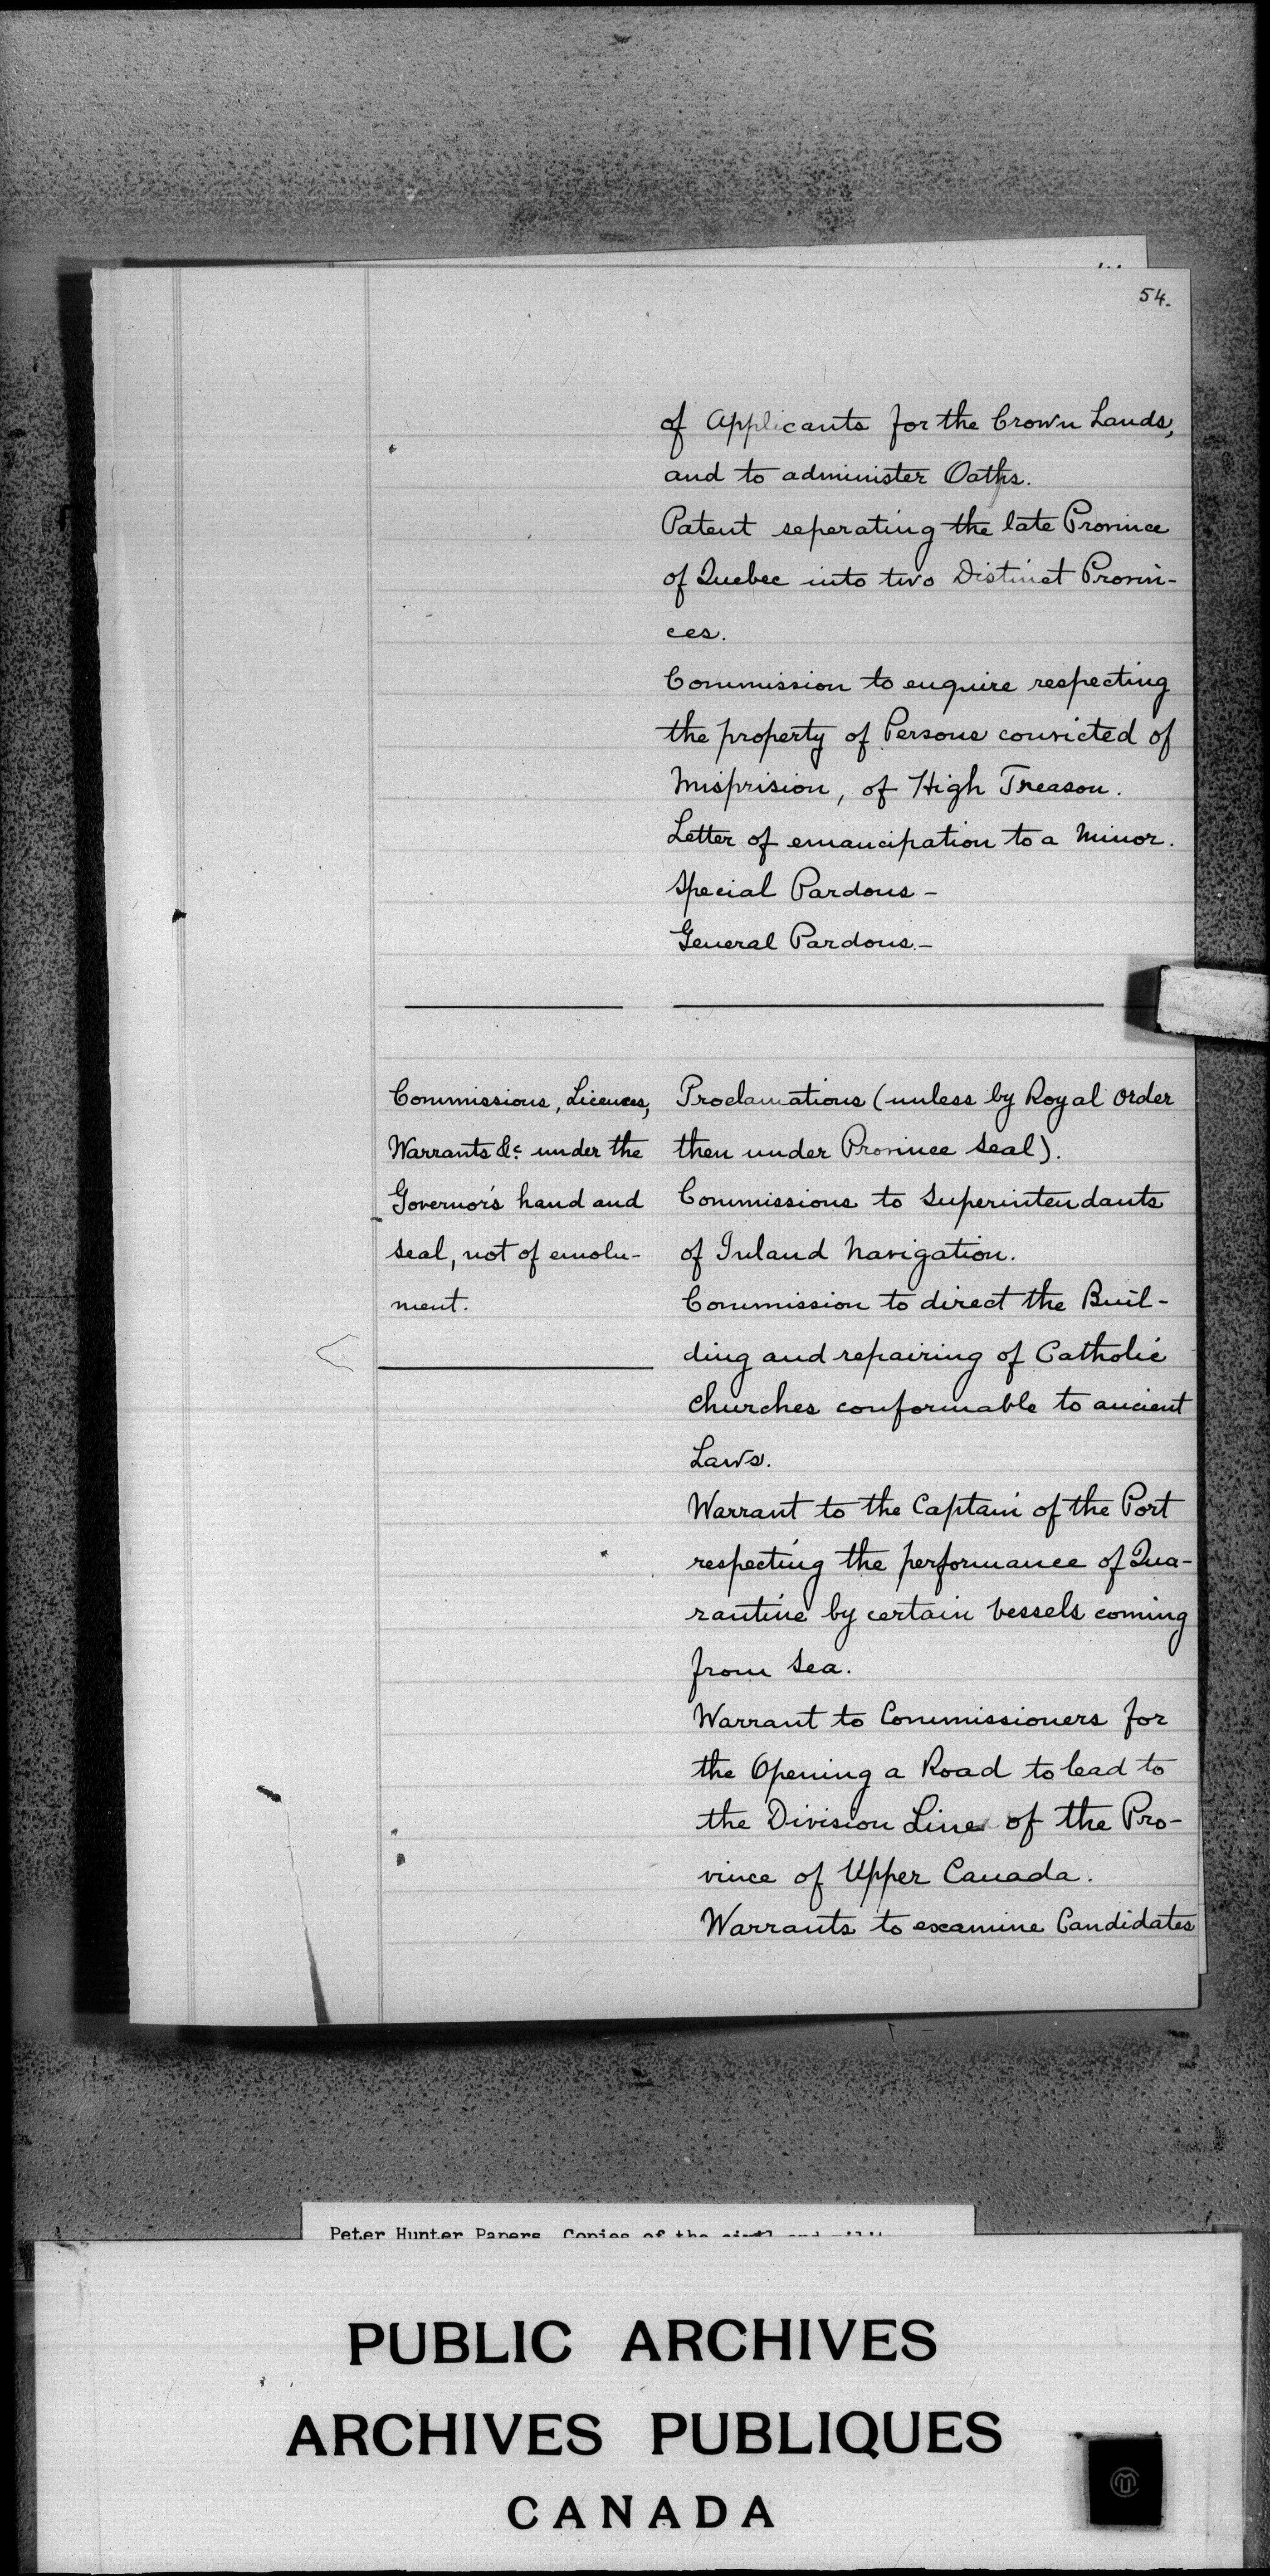 54.
of Applicants for the Crown Lands,
and to administer Oaths.
Patent seperating the late Province
of Quebec into two Distinct Provin-
ces.
Commission to enquire respecting
the property of Persons convicted of
Misprision, of High Treason.
Letter of emancipation to a Minor.
Special Pardons -
General Pardons. -
Commissions, Licences,
Warrants &c. under the
Governor's hand and
seal, not of emolu-
ment.
Proclamations (unless by Royal Order
then under Province Seal).
Commissions to Superintendants
of Inland Navigation.
Commission to direct the Buil-
ding and repairing of Catholic
Churches conformable to ancient
Laws.
Warrant to the Captain of the Port
respecting the performance of Qua-
rantine by certain Vessels coming
from Sea.
Warrant to Commissioners for
the Opening a Road to lead to
the Division Line of the Pro-
vince of Upper Canada.
Warrants to examine Candidates
Peter Hunter Papers. Copies of the civil and
PUBLIC ARCHIVES
ARCHIVES PUBLIQUES
CANADA